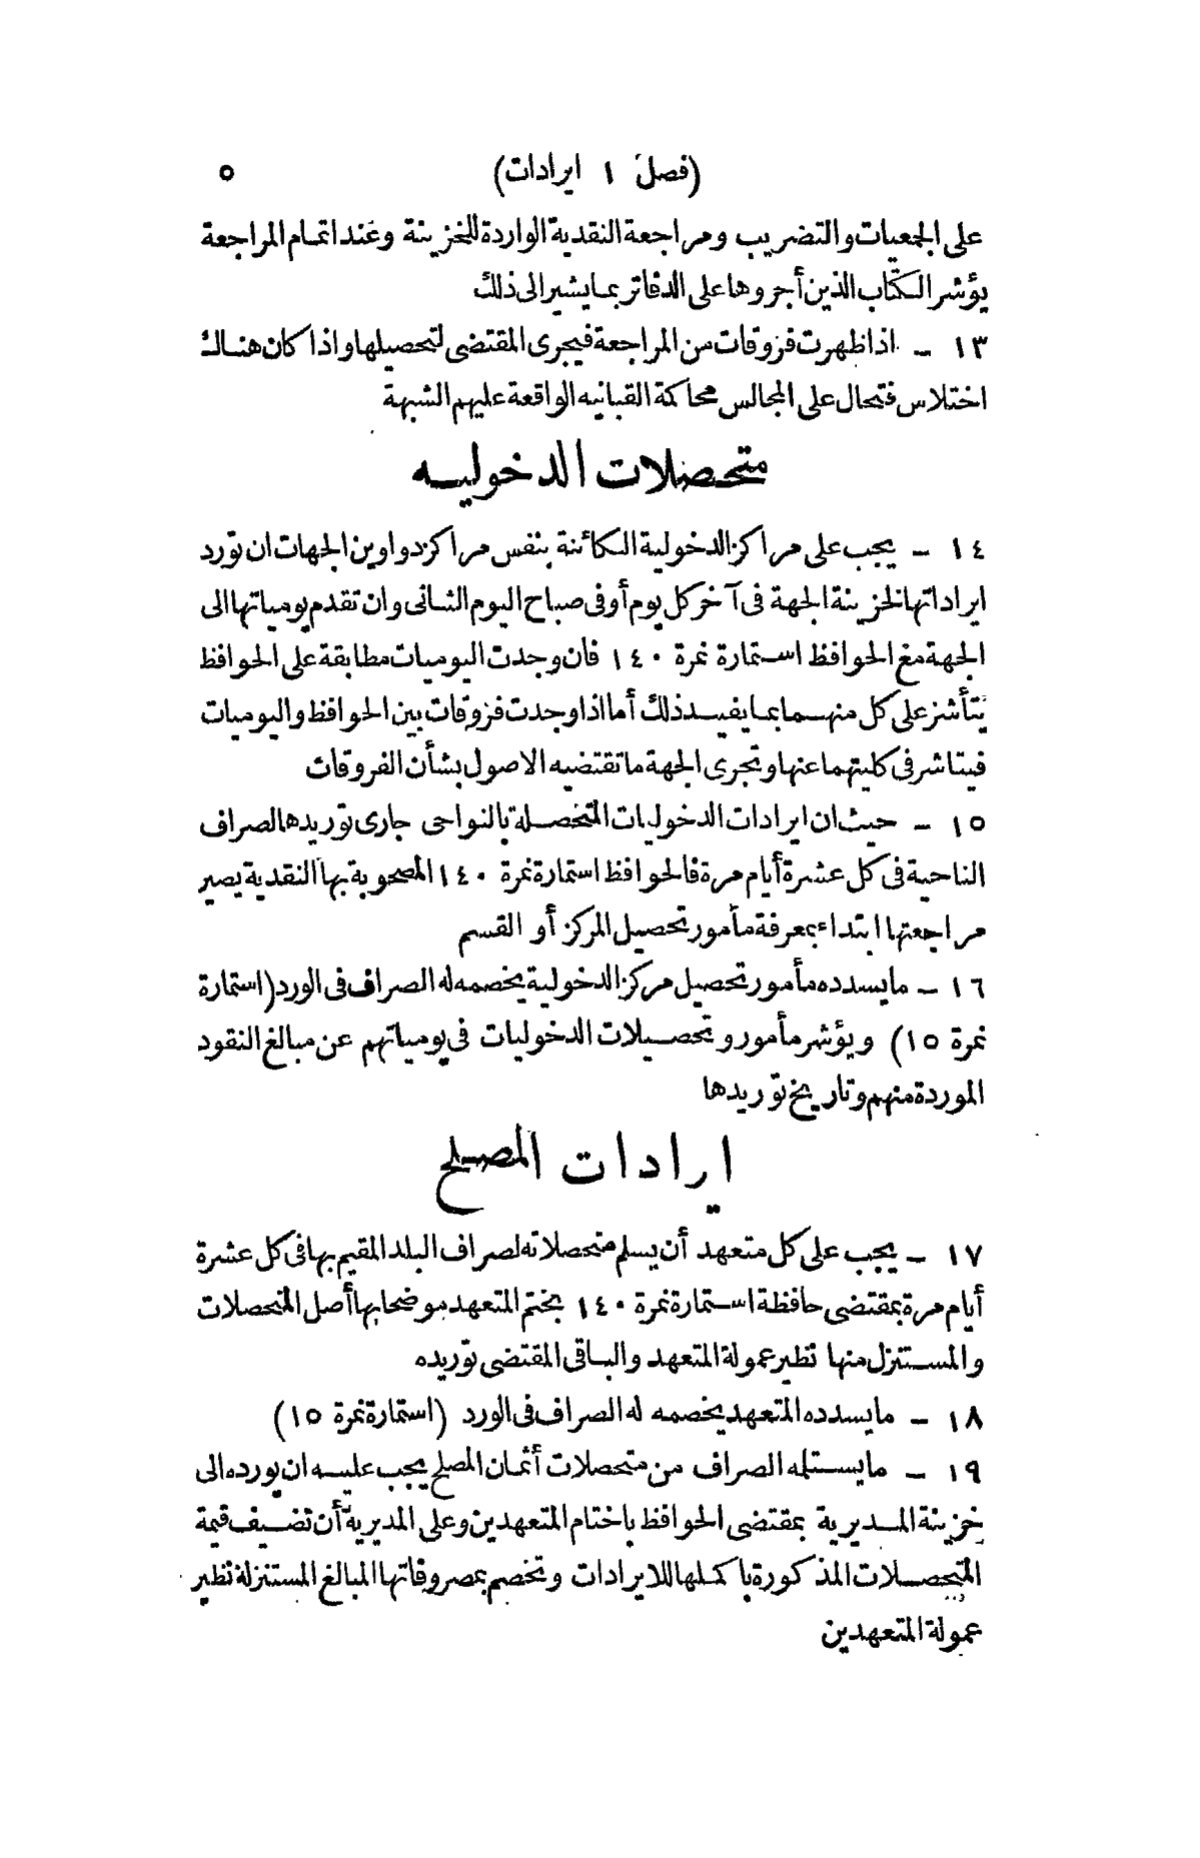 (فصل ١ ايرادات) ٥
على الجمعيات والتضريب ومراجعة النقدية الواردة للخزينة وعند اتمام المراجعة
يؤشر الكتاب الذين أجروها على الدفاتر بما يشير الى ذلك
١٣ - اذا ظهرت فروقات من المراجعة فيجرى المقتضى لتحصيلها واذا كان هناك
اختلاس فتحال على المجالس محاكمة القبانيه الواقعة عليهم الشبهة
متحصلات الدخوليه
١٤ - يجب على مراكز الدخولية الكائنة بنفس مراكز دواوين الجهات ان تورد
ايراداتها لخزينة الجهة فى آخر كل يوم أو فى صباح اليوم الثانى وان تقدم يومياتها الى
الجهة مع الحوافظ استمارة نمرة ١٤٠ فان وجدت اليوميات مطابقة على الحوافظ
يتأشر على كل منهما بما يفيد ذلك أما اذا وجدت فروقات بين الحوافظ واليوميات
فيتاشر فى كليتهما عنها وتجرى الجهة ما تقتضيه الاصول بشأن الفروقات
١٥ - حيث ان ايرادات الدخوليات المتحصلة بالنواحى جارى توريدها لصراف
الناحية فى كل عشرة أيام مرة فالحوافظ استمارة نمرة ١٤٠ المصحوبة بها النقدية يصير
مراجعتها ابتداء بمعرفة مأمور تحصيل المركز أو القسم
١٦ - ما يسدده مأمور تحصيل مركز الدخولية يخصمه له الصراف فى الورد (استمارة
نمرة ١٥) ويؤشر مأمورو تحصيلات الدخوليات فى يومياتهم عن مبالغ النقود
الموردة منهم وتاريخ توريدها
ايرادات الملح
١٧ - يجب على كل متعهد أن يسلم متحصلاته لصراف البلد المقيم بها فى كل عشرة
أيام مرة بمقتضى حافظة استمارة نمرة ١٤٠ بختم المتعهد موضحا بها أصل المتحصلات
والمستنزل منها نظير عمولة المتعهد والباقى المقتضى توريده
١٨ - ما يسدده المتعهد يخصمه له الصراف فى الورد (استمارة نمرة ١٥)
١٩ - ما يستلمه الصراف من متحصلات أثمان الملح يجب عليه ان يورده الى
خزينة المديرية بمقتضى الحوافظ باختام المتعهدين وعلى المديرية أن تضيف قيمة
المتحصلات المذكورة باكملها للايرادات وتخصم بمصروفاتها المبالغ المستنزلة نظير
عمولة المتعهدين